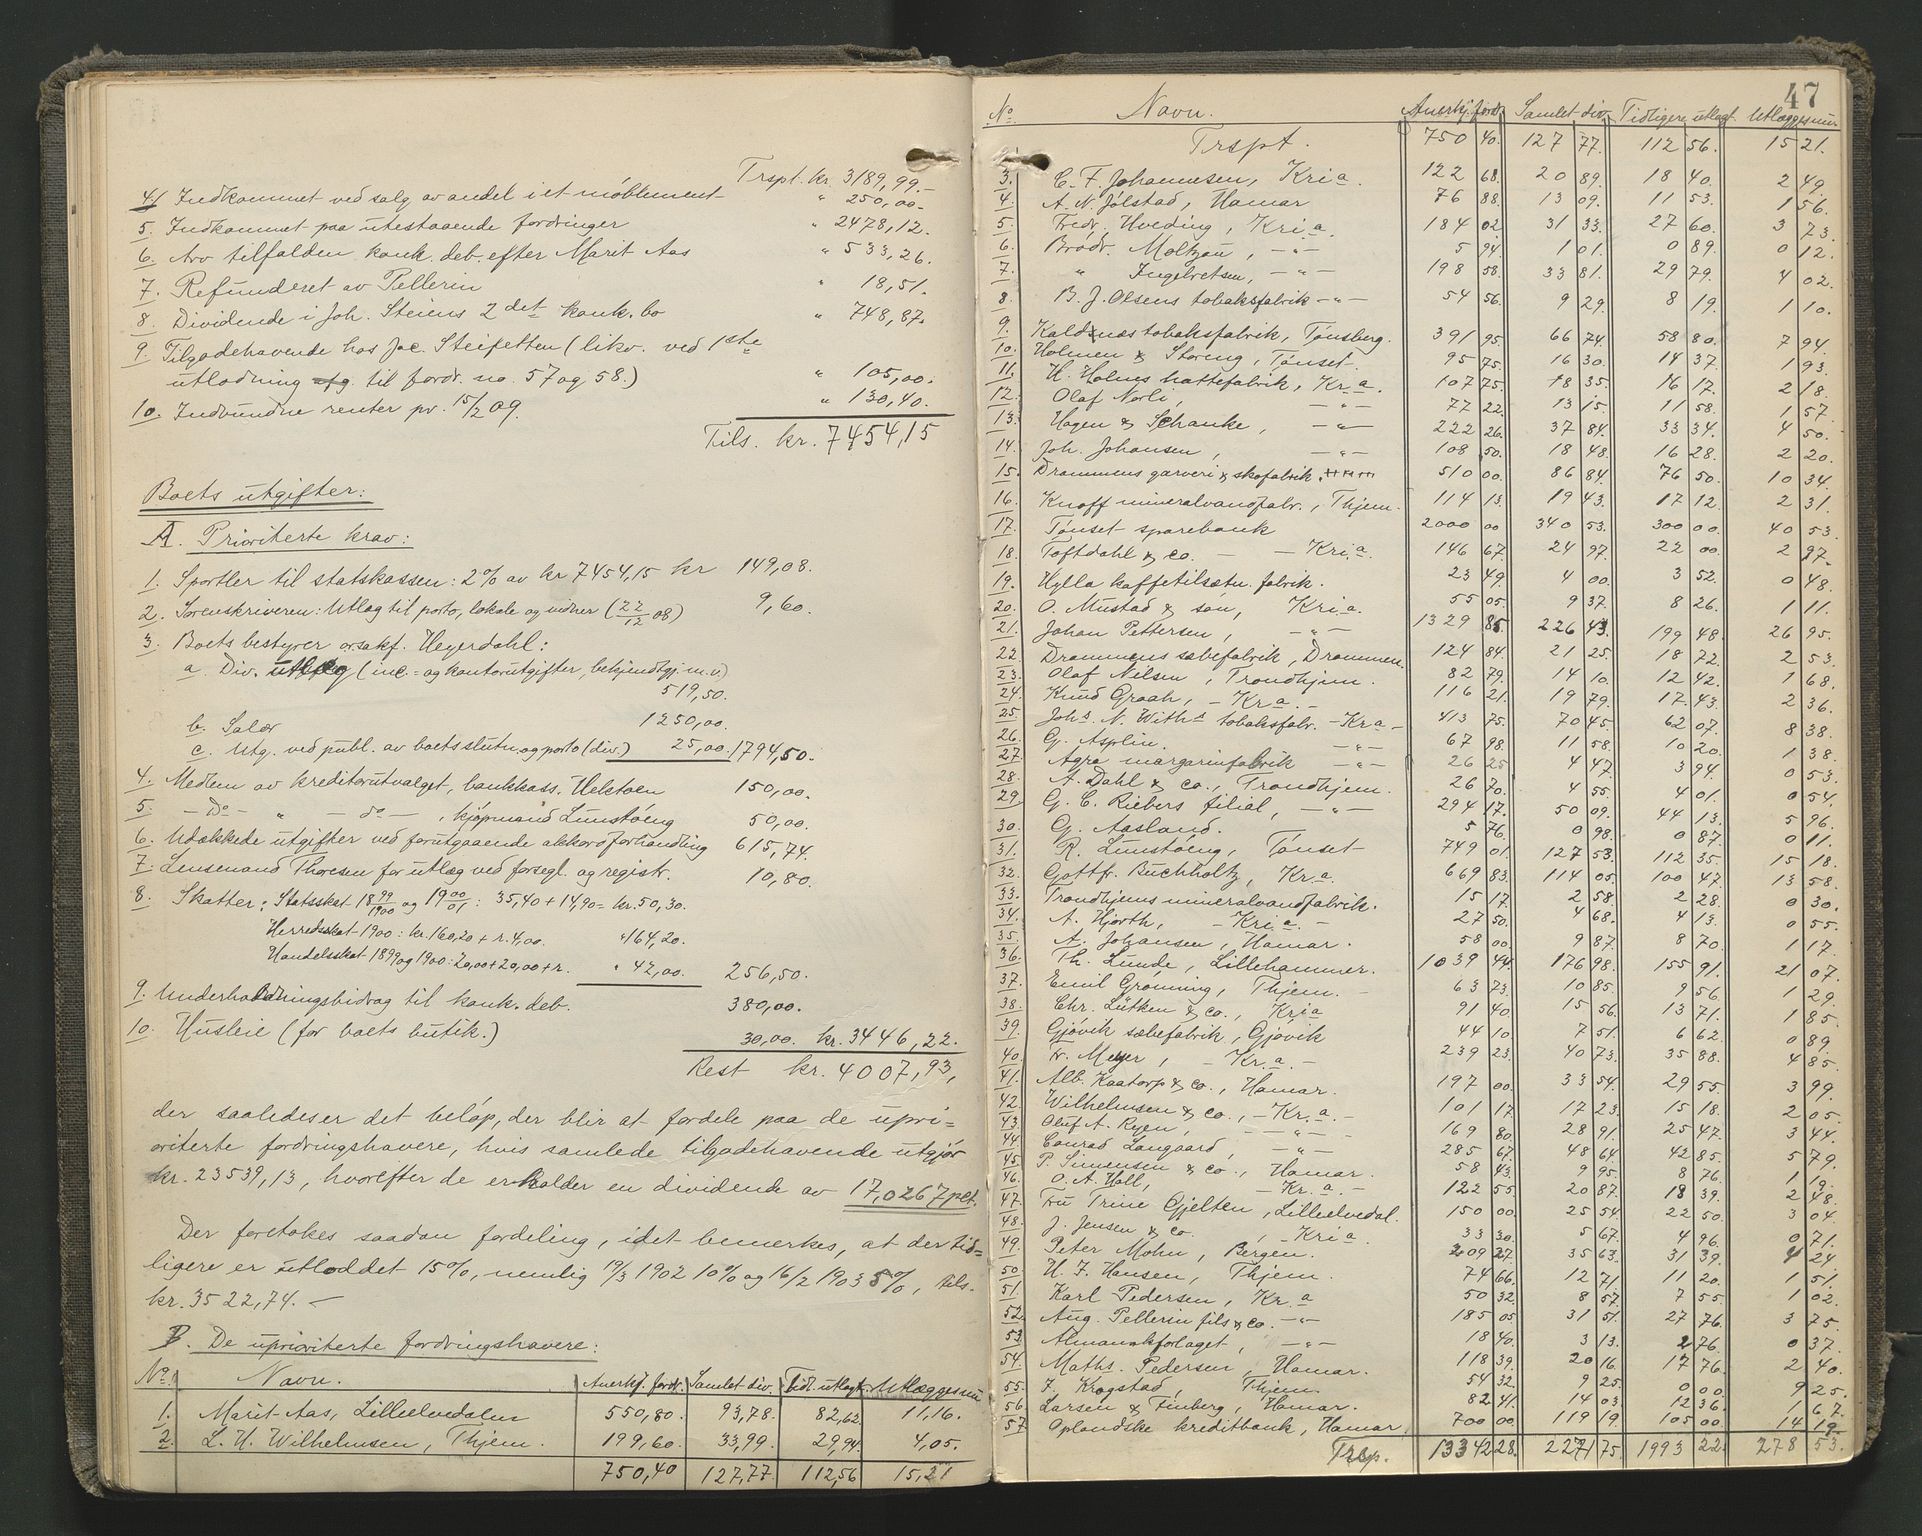 Trspt. kr. 3189,99.-
4. Indkommet ved salg av andel i et møblement " 250,00.-
5. Indkommet paa utestaaende fordringer " 2478,12.
6. Arv tilfalden konk. deb. efter Marit Aas " 533,26.
7. Refunderet av Pellerin " 18,51.
8. Dividende i Joh. Steiens 2det konk. bo " 748,87.
9. Tilgodehavende hos Jac. (likv. ved 1ste
utlodning til fordr. no. 57 og 58.) " 105,00.
10. Indvundne renter pr. 15/2 09. " 130,40.
Tils. kr. 7454,15
Boets utgifter:
A. Prioriterte krav:
1. Sportler til statskassen: 2% av kr 7454,15 kr 149,08.
2. Sorenskriveren: Utlæg til porto, lokale og vidner (22/12 08) 9,60.
3. Boets bestyrer orsakf. Heyerdahl:
a. Div. utlæg (inc. og kontorutgifter, bekjendtgj. m.v.)
519,50.
b. Salær 1250,00.
c. Utg. ved publ. av boets slutn. og porto (div.) 25,00. 1794,50.
4. Medlem av kreditorutvalget, bankkass. Hektoen 150,00.
5. - Do - " - do - , kjøpmand Lunstøeng 50,00.
6. Udækkede utgifter ved forutgaaende akkordforhandling 615,74.
7. Lensmand Thoresen for utlæg ved forsegl. og registr. 10,80.
8. Skatter: Statsskat 1899/1900 og 1900/01: 35,40 + 14,90 = kr. 50,30.
Herredsskat 1900: kr. 160,20 + r. 4,00. " 164,20.
Handelsskat 1899 og 1900: 20,00 + 20,00 + r. " 42,00. 256,50.
9. Underholdningsbidrag til konk. deb. 380,00.
10. Husleie (for boets butik.) 30,00. kr. 3446,22.
Rest kr. 4007,93,
der saaledes er det beløp, der blir at fordele paa de upri=
oriterte fordringshavere, hvis samlede tilgodehavende utgjør
kr. 23539,13, hvorefter de erholder en dividende av 17,0267 pct.
Der foretokes saadan fordeling, idet bemerkes, at der tid=
ligere er utloddet 15%, nemlig 19/3 1902 10% og 16/2 1903 5%, tils.
kr. 3522,74. -
B. De uprioriterte fordringshavere:
No. Navn. Anerkj. fordr. Samlet div. Tidl. utlagt. Utlægges nu
1. Marit Aas, Lilleelvedalen 550,80. 93,78. 82,62. 11,16.
2. L. H. Wilhelmsen, Thjem. 199,60. 33,99. 29,94. 4,05.
750,40 127,77 112,56 15,21
47
No. Navn. Anerkj. fordr. Samlet div. Tidligere utlagt. Utlægges nu
Trspt. 750 40. 127 77. 112 56. 15 21.
3. C. F. Johannesen, Kria. 122 68. 20 89. 18 40. 2 49.
4. A. N. Jølstad, Hamar 76 88. 13 09. 11 53. 1 56.
5. Fredr. Hveding, Kria. 184 02. 31 33. 27 60. 3 73.
6. Brødr. Moltzau, - " - 5 94. 1 01. 0 89. 0 12.
7. " Ingebretsen, - " - 198 58. 33 81. 29 79. 4 02.
8. B. J. Olsens tobaksfabrik - " - 54 56. 9 29. 8 19. 1 10.
9. Kaldnæs tobaksfabrik, Tønsberg. 391 95. 66 74. 58 80. 7 94.
10. Holmen & Støreng, Tønset. 95 75. 16 30. 14 37. 1 93.
11. H. Holms hattefabrik, Kr.a. 107 75. 18 35. 16 17. 2 18.
12. Olaf Norli, - " - 77 22. 13 15. 11 58. 1 57.
13. Hagen & Schanke, - " - 222 26. 37 84. 33 34. 4 50.
14. Joh. Johansen, - " - 108 50. 18 48. 16 28. 2 20.
15. Drammens garveri & skofabrik. 510 00. 86 84. 76 50. 10 34.
16. Knoff mineralvandfabr., Thjem. 114 13. 19 43. 17 12. 2 31.
17. Tønset sparebank 2000 00 340 53. 300 00. 40 53.
18. Toftdahl & co. - - Kria. 146 67. 24 97. 22 00. 2 97.
19. Hylla kaffetilsætn. fabrik. 23 49. 4 00. 3 52. 0 48.
20. O. Mustad & søn, Kria. 55 05. 9 37. 8 26. 1 11.
21. Johan Pettersen, - " - 1329 85. 226 43. 199 48. 26 95.
22. Drammens sæbefabrik, Drammen. 124 84. 21 25. 18 72. 2 53.
23. Olaf Nilsen, Trondhjem. 82 79. 14 10. 12 42. 1 68.
24. Knud Graah, - Kr.a. - 116 21. 19 79. 17 43. 2 36.
25. Johs. N. Withs tobaksfabr. - Kr.a - 413 75. 70 45. 62 07. 8 38.
26. G. Asplin. - " - 67 98. 11 58. 10 20. 1 38.
27. Agra margarinfabrik - " - 26 25 4 47. 3 94. 0 53.
28. A. Dahl & co., Trondhjem. 26 70. 4 55. 4 01. 0 54.
29. G. C. Riebers filial, - " - 294 17. 50 09. 44 13. 5 96.
30. G. Aasland. 5 76. 0 98. 0 87. 0 11.
31. R. Lunstøeng, Tønset 749 01. 127 53. 112 35. 15 18.
32. Gottfr. Buchholtz, Kr.a. 669 83. 114 05. 100 47. 13 58.
33. Trondhjems mineralvandfabrik. 15 17. 2 58. 2 28. 0 30.
34. A. Hjorth, - Kria. - 27 50. 4 68. 4 13. 0 55.
35. A. Johansen, Hamar. 58 00. 9 87. 8 70. 1 17.
36. Th. Lunde, Lillehammer. 1039 44. 176 98. 155 91. 21 07.
37. Emil Grønning, Thjem. - 63 73. 10 85. 9 56. 1 29.
38. Chr. Lütken & co., Kria 91 40. 15 56. 13 71. 1 85.
39. Gjøvik sæbefabrik, Gjøvik 44 10 7 51. 6 62. 0 89.
40. Fr. Meyer, - Kr.a. - 239 23. 40 73. 35 88. 4 85.
41. Alb. Kaatorp & co., Hamar. 197 00. 33 54. 29 55. 3 99.
42. Wilhelmsen & co., - Kr.a. - 101 17. 17 23. 15 18. 2 05.
43. Oluf A. Ryen, - " - 169 80. 28 91. 25 47. 3 44.
44. Conrad Langaard, - " - 285 67. 48 64. 42 85. 5 79.
45. P. Simensen & co., Hamar. 58 43. 9 95. 8 76. 1 19.
46. O. A. Hall, - Kr.a. - 122 55. 20 87. 18 39. 2 48.
47. Fru Trine Gjelten, Lilleelvedal. 150 00. 25 54 22 50. 3 04.
48. J. Jensen & co., Kria. 33 30. 5 67. 4 96. 0 71.
49. Peter Mohn, Bergen. 209 27. 35 63. 31 39. 4 24.
50. H. F. Hansen, Thjem. 74 66. 12 71. 11 20. 1 51.
51. Karl Pedersen, Kr.a 50 32. 8 57. 7 55 1 02.
52. Aug. Pellerin fils & co. - " - 185 05 31 51. 27 76. 3 75.
53. Almanakforlaget, - " - 18 40. 3 13. 2 76. 0 37.
54. Maths. Pedersen, Hamar. 118 39. 20 16. 17 76. 2 40.
55. F. Krogstad, Thjem. 54 32. 9 25. 0 00. 9 25.
56. Larsen & Finberg, Hamar. 82 41. 14 03. 12 36. 1 67.
57. Oplandske kreditbank, Hamar. 700 00. 119 19. 105 00. 14 19.
Trsp. 13342 28. 2271 75. 1993 22. 278 53.